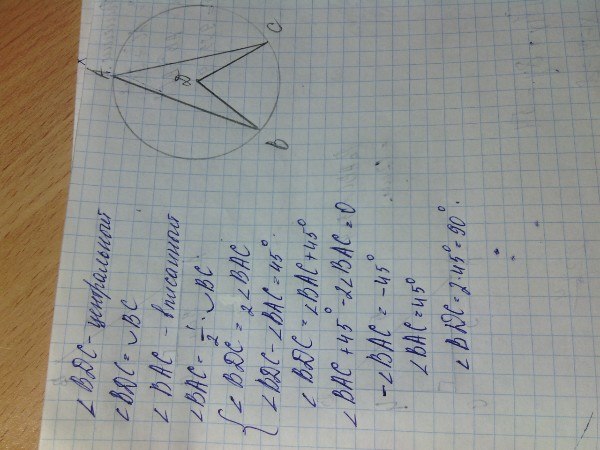 A
D
C
B
∠BDC - центральный
∠BDC = ◡BC
∠BAC - вписанный
∠BAC = 1/2 · ◡BC
{ ∠BDC = 2∠BAC
∠BDC - ∠BAC = 45°.
∠BDC = ∠BAC + 45°
∠BAC + 45° - 2∠BAC = 0
-∠BAC = -45°
∠BAC = 45°
∠BDC = 2·45° = 90°.